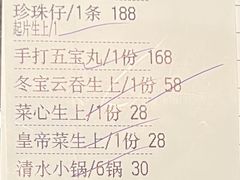 珍珠仔/1条 188
起片生上/1
手打五宝丸/1份 168
冬宝云吞生上/1份 58
菜心生上/1份 28
皇帝菜生上/1份 28
清水小锅/6锅 30